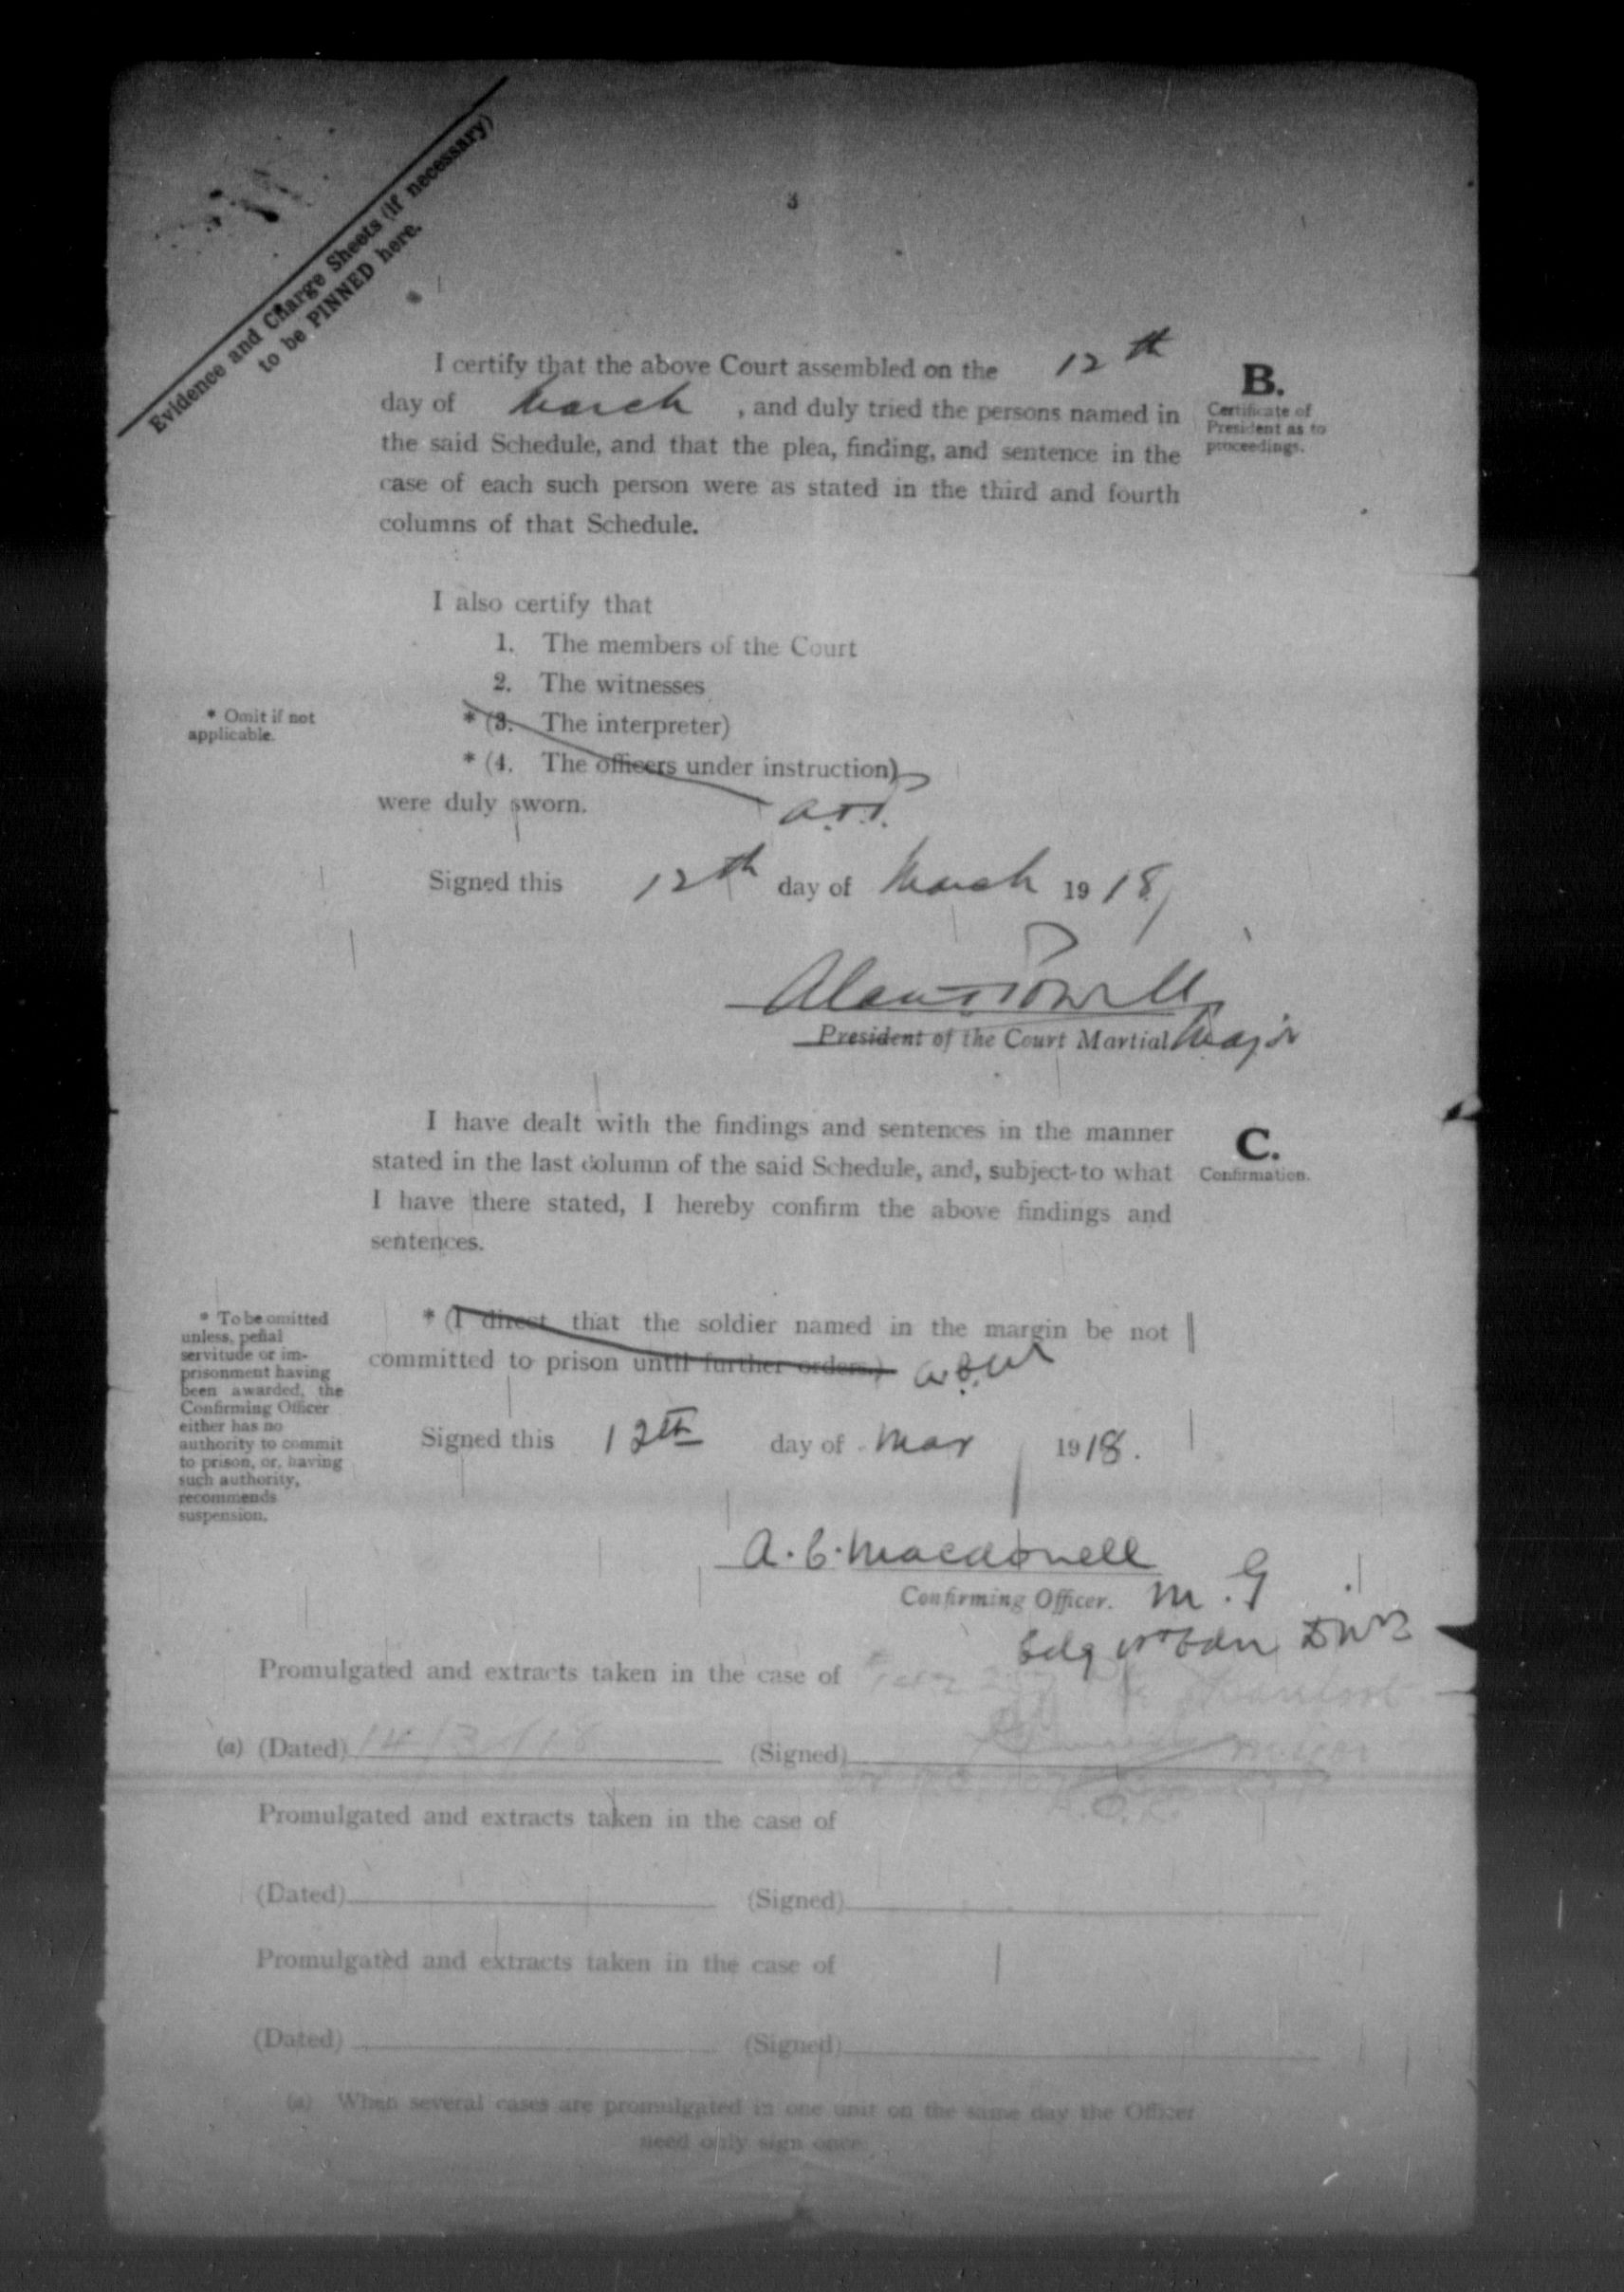 Evidence and Charge Sheets (if necessary)
to be PINNED here.
3
I certify that the above Court assembled on the 12th
day of March , and duly tried the persons named in
the said Schedule, and that the plea, finding, and sentence in the
case of each such person were as stated in the third and fourth
columns of that Schedule.
B.
Certificate of
President as to
proceedings.
I also certify that
1. The members of the Court
2. The witnesses
* (3. The interpreter)
* (4. The officers under instruction)
were duly sworn.
* Omit if not
applicable.
Signed this 12th day of March 1918
President of the Court Martial Major
I have dealt with the findings and sentences in the manner
stated in the last column of the said Schedule, and, subject to what
I have there stated, I hereby confirm the above findings and
sentences.
C.
Confirmation.
* (I direct that the soldier named in the margin be not
committed to prison until further orders.)
* To be omitted
unless, penal
servitude or im-
prisonment having
been awarded, the
Confirming Officer
either has no
authority to commit
to prison, or, having
such authority,
recommends
suspension.
Signed this 12th day of Mar 1918.
A. C. Macdonell
Confirming Officer. M. G
Promulgated and extracts taken in the case of
(a) (Dated) 14/3/18 (Signed) Major
Promulgated and extracts taken in the case of
(Dated) (Signed)
Promulgated and extracts taken in the case of
(Dated) (Signed)
(a) When several cases are promulgated in one unit on the same day the Officer
need only sign once.